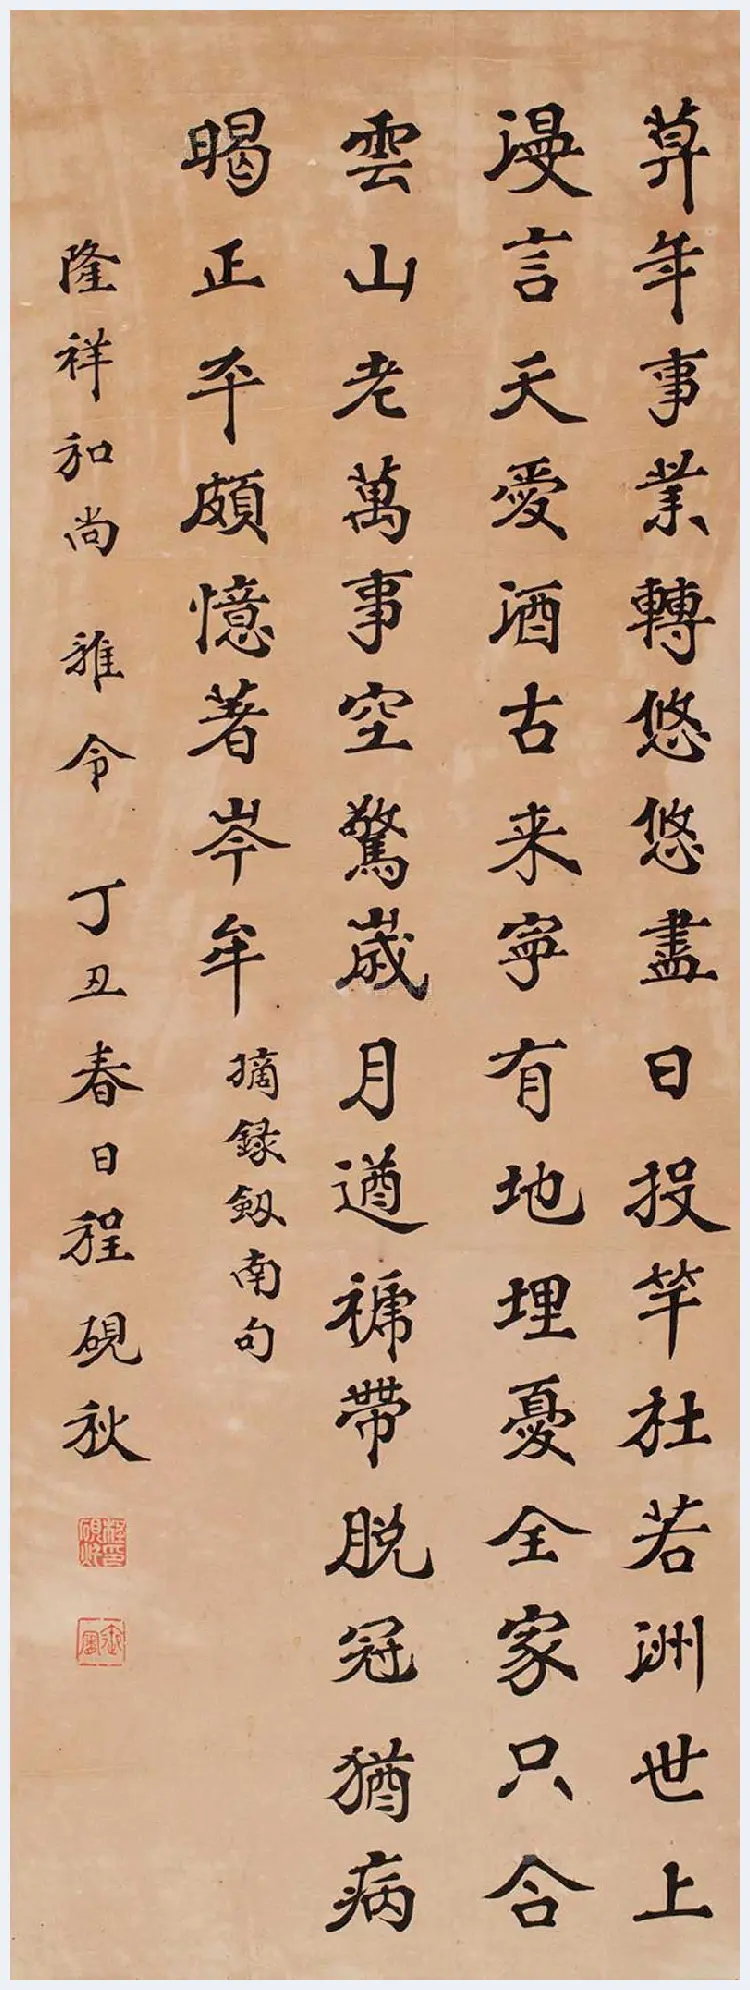 莫年事業轉悠悠盡日投竿杜若洲世上
漫言天愛酒古来寧有地埋憂全家只合
雲山老萬事空驚歲月遒褫帶脱冠猶病
暍正平頗憶著岑牟
摘録劔南句
隆祥和尚 雅令 丁丑春日程硯秋
程印硯秋
御霜